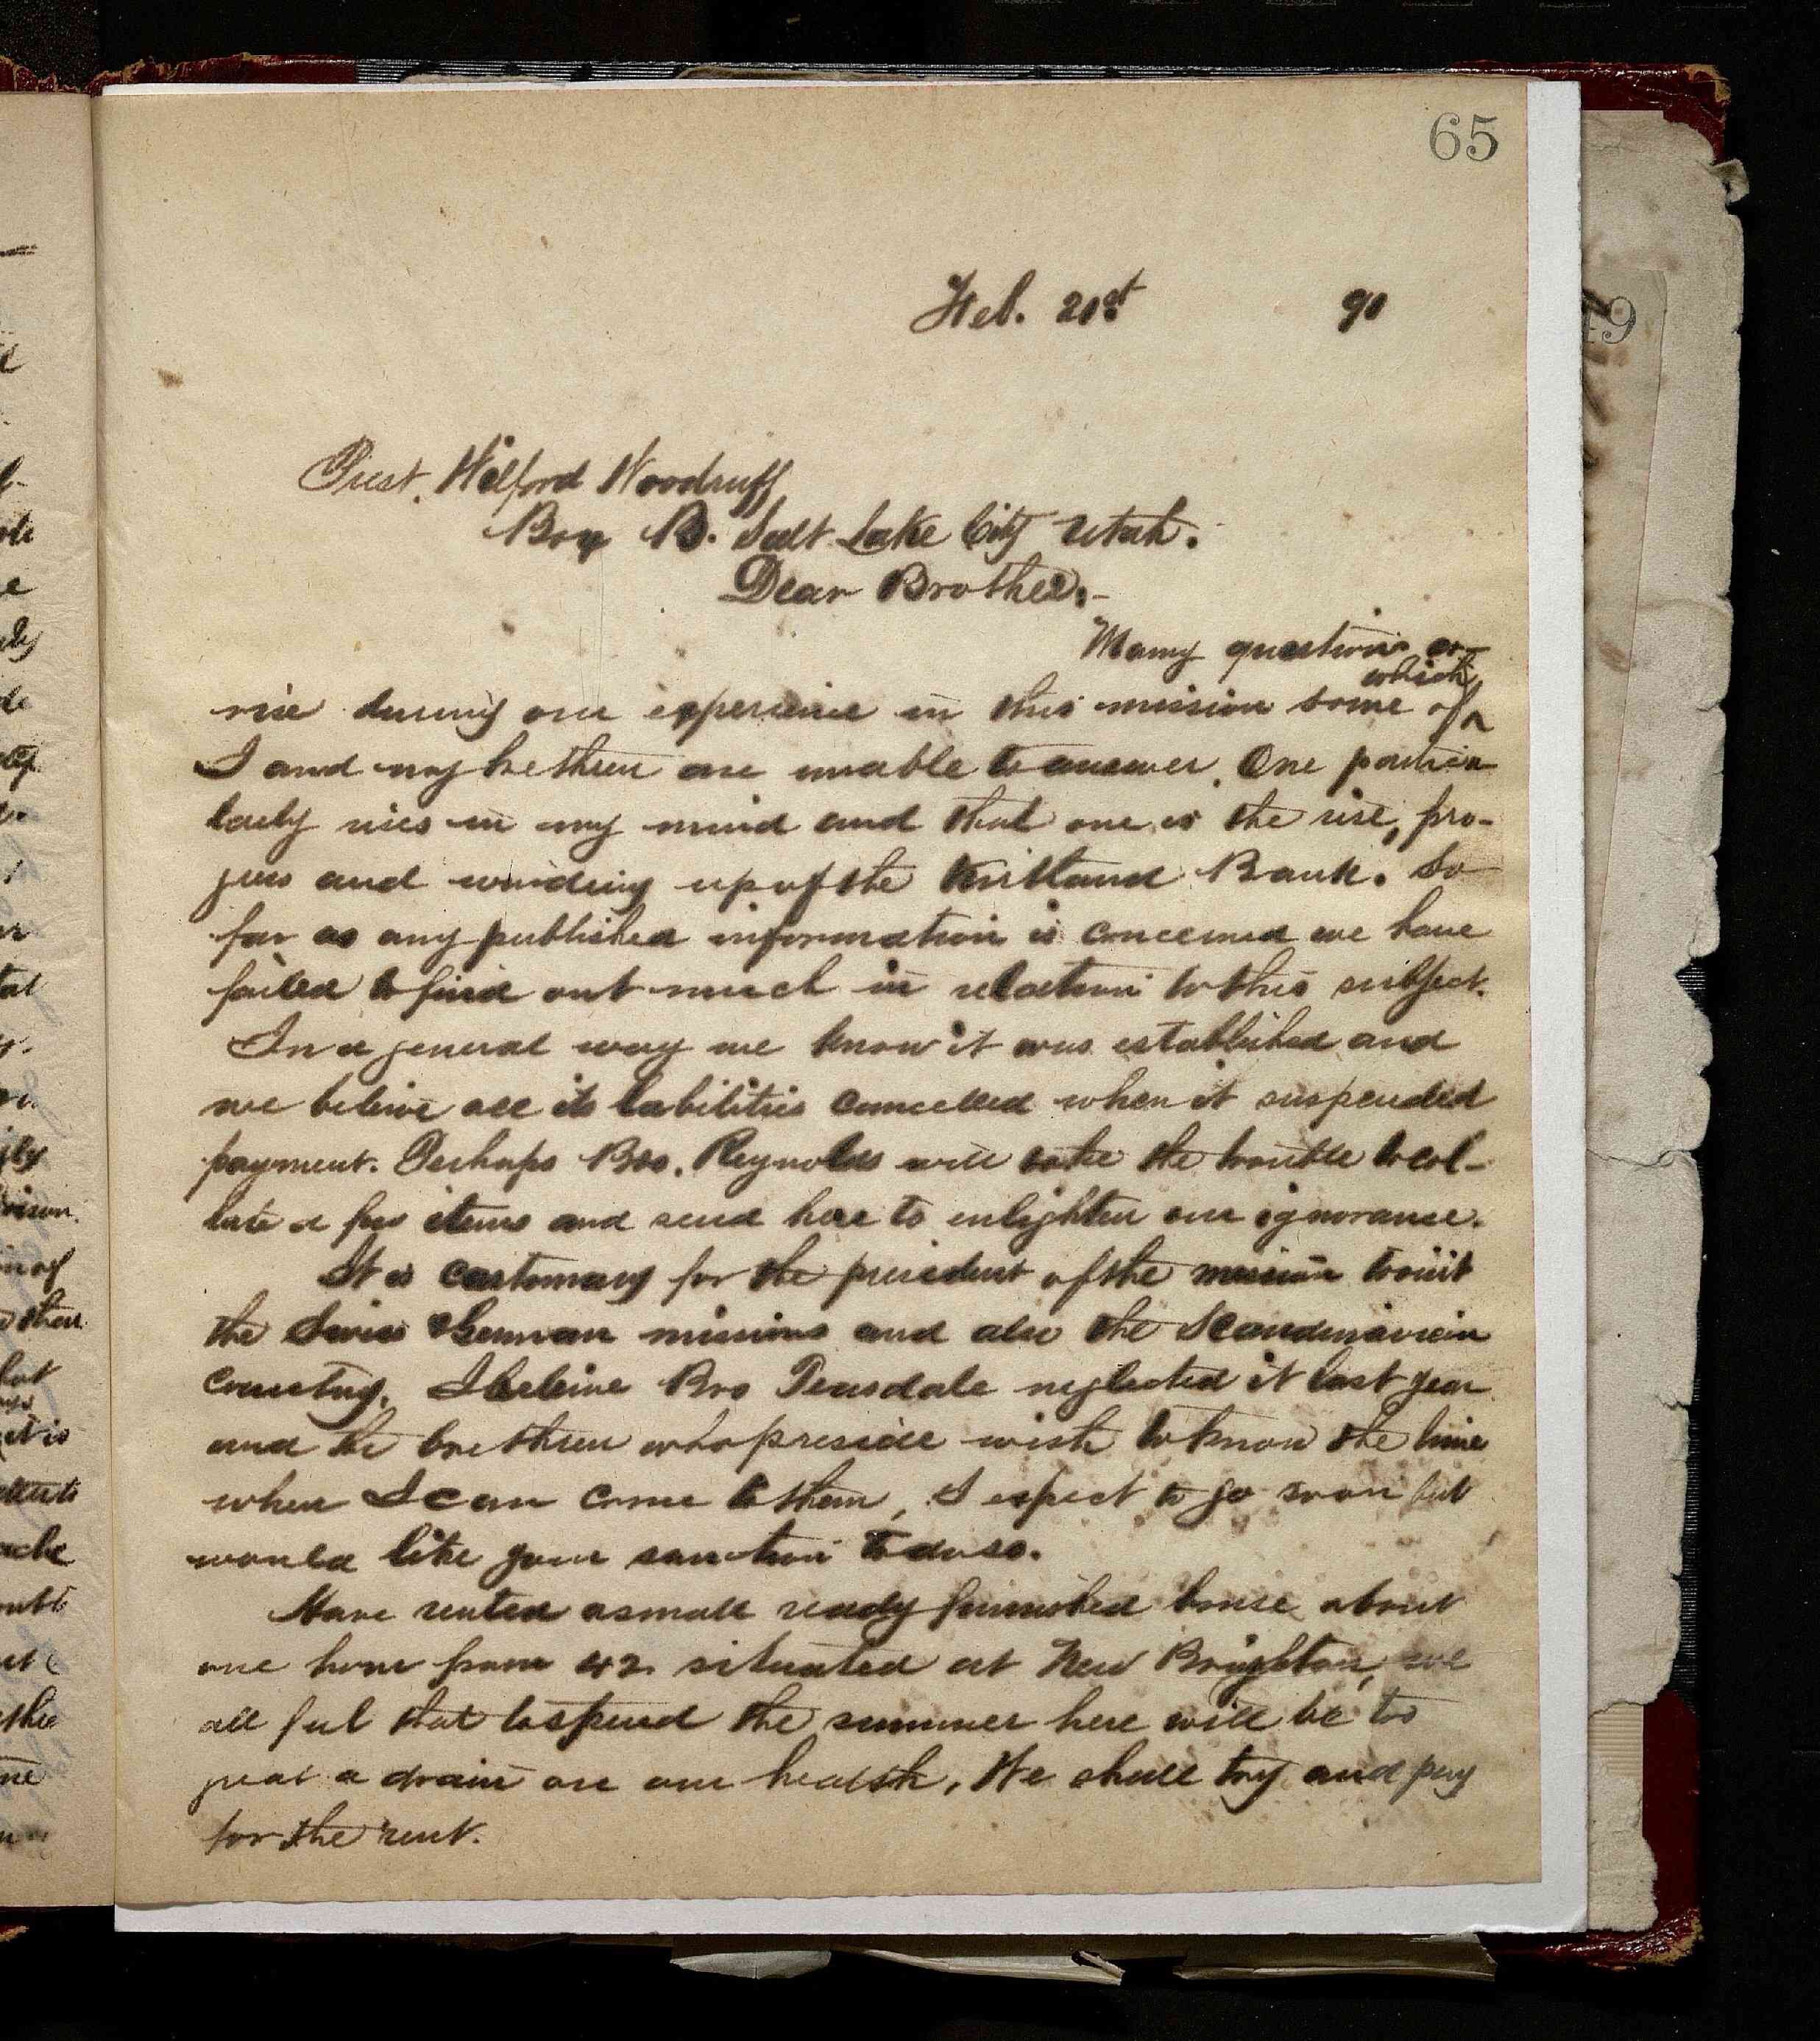 65
Feb. 21st 91
Prest. Wilford Woodruff
Box B. Salt Lake City Utah.
Dear Brother:-
Many questions ar-
rise during our experience in this mission some of which
I and my brethren are unable to answer. One particu
larly rises in my mind and that one is the rise, pro-
gress and winding up of the Kirtland Bank. So
far as any published information is concerned we have
failed to find out much in relation to this subject.
In a general way we know it was established and
we beleive all its liabilities cancelled when it suspended
payment. Perhaps Bro. Reynolds will take the trouble to col-
late a few items and send here to enlighten our ignorance.
It is customary for the president of the mission to visit
the Swiss & German missions and also the Scandinavian
country. I beleive Bro Teasdale neglected it last year
and the brethren who preside wish to know the time
when I can come to them, I expect to go soon but
would like your sanction to do so.
Have rented a small ready furnished house about
one hour from 42 situated at New Brighton, we
all feel that to spend the summer here will be too
great a drain on our health. We shall try and pay
for the rent.